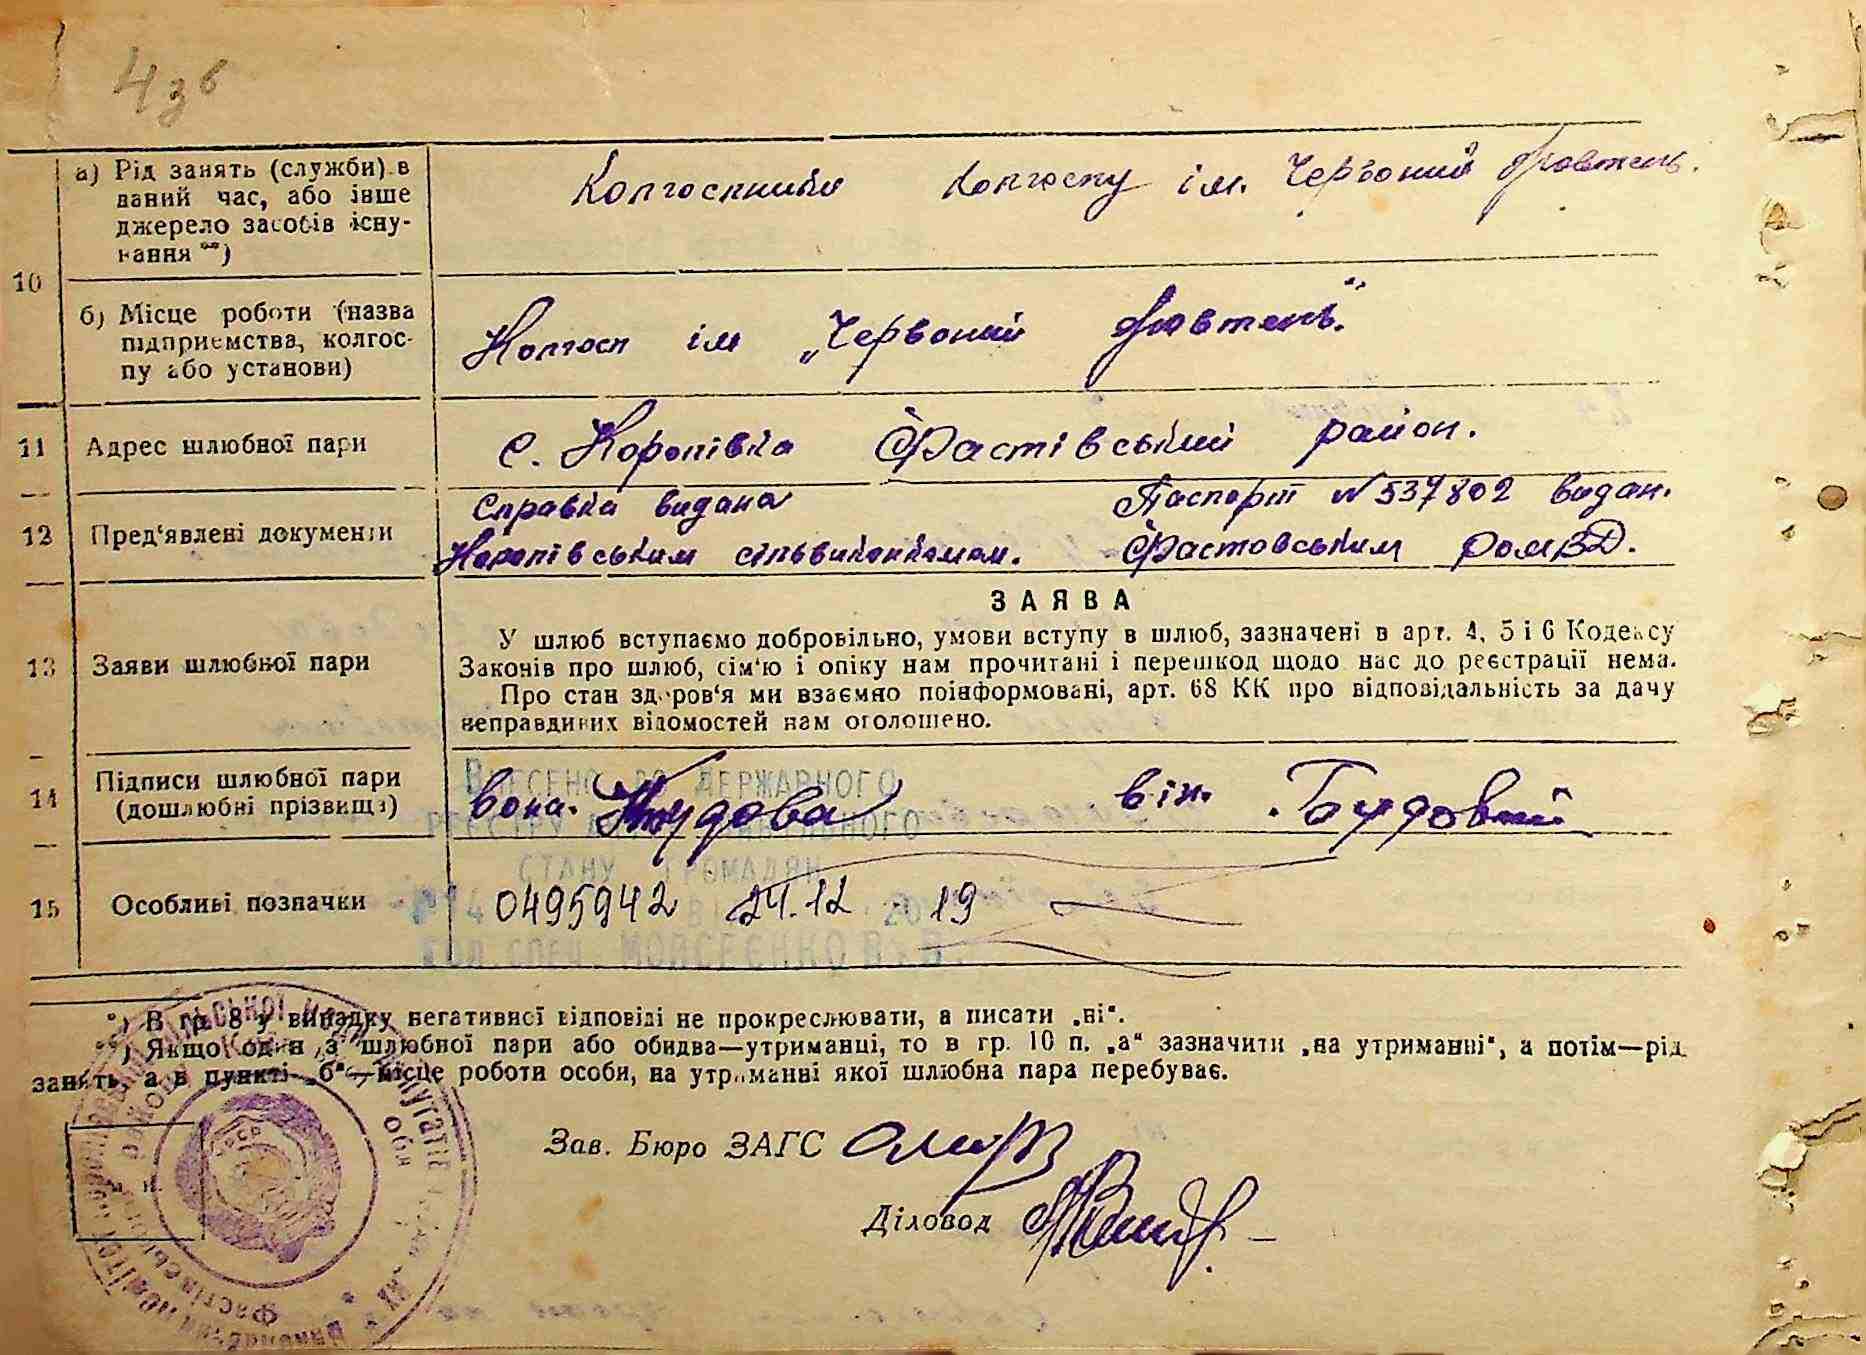 43б
10
а) Рід занять (служби) в
даний час, або інше
джерело засобів існу-
вання **)
Колгоспники колгоспу ім. Червоний Жовтень.
б) Місце роботи (назва
підприємства, колгос-
пу або установи)
Колгосп ім „Червоний Жовтень".
11
Адрес шлюбної пари
с. Королівка Фастівський район.
12
Пред'явлені документи
Справка видана
Королівським сільвиконкомом.
Паспорт № 537802 видан.
Фастовським РОМВД.
13
Заяви шлюбної пари
ЗАЯВА
У шлюб вступаємо добровільно, умови вступу в шлюб, зазначені в арт. 4, 5 і 6 Кодексу
Законів про шлюб, сім'ю і опіку нам прочитані і перешкод щодо нас до реєстрації нема.
Про стан здоров'я ми взаємно поінформовані, арт. 68 КК про відповідальність за дачу
неправдивих відомостей нам оголошено.
14
Підписи шлюбної пари
(дошлюбні прізвища)
вона. він. Будовий
ВНЕСЕНО ДО ДЕРЖАВНОГО
РЕЄСТРУ
СТАНУ ГРОМАДЯН
15
Особливі позначки
0495942 24.12 2019
ГОЛ. СПЕЦ. МОЙСЕЄНКО В. В.
*) В гр. 8 у випадку негативної відповіді не прокреслювати, а писати „ні".
**) Якщо один з шлюбної пари або обидва—утриманці, то в гр. 10 п. „а" зазначити „на утриманні", а потім—рід
занять, а в пункті „б"—місце роботи особи, на утриманні якої шлюбна пара перебуває.
Зав. Бюро ЗАГС
Діловод